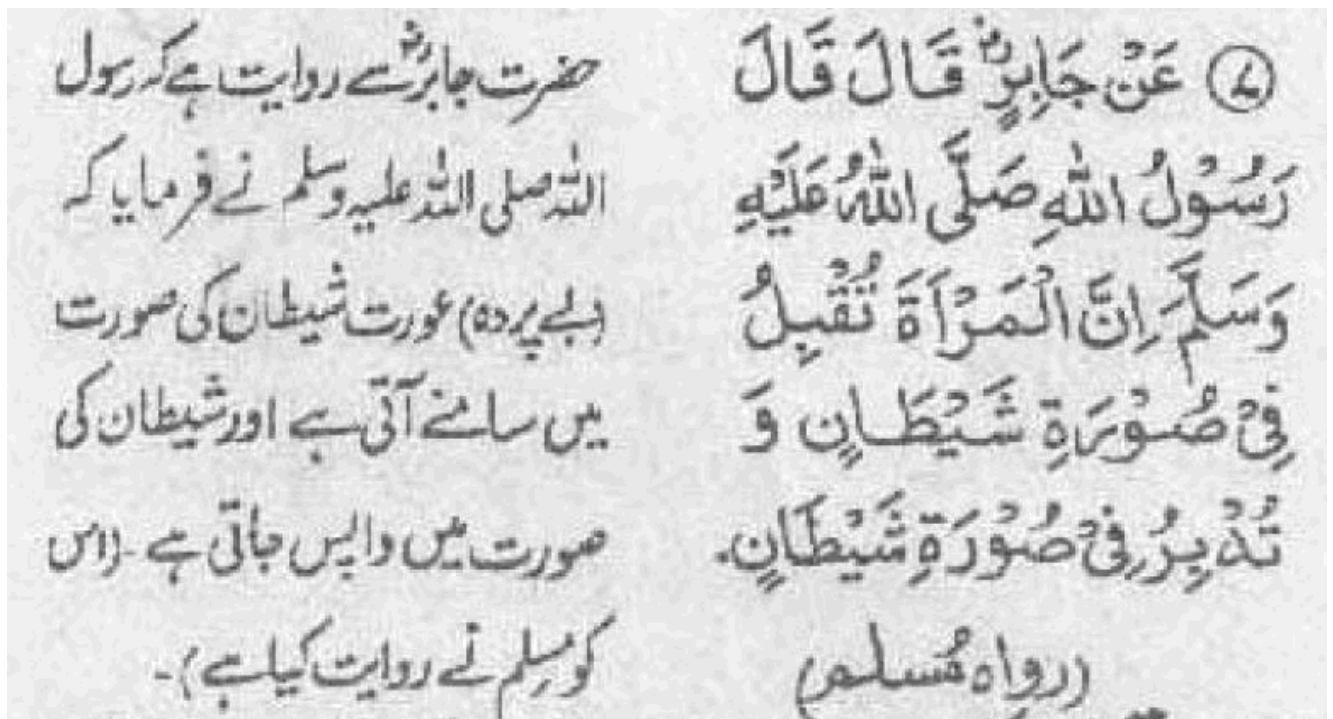 ۷ عَنْ جَابِرٍؓ قَالَ قَالَ
رَسُوْلُ اللّٰهِ صَلَّى اللّٰهُ عَلَيْهِ
وَسَلَّمَ اِنَّ الْمَرْأَةَ تُقْبِلُ
فِىْ صُوْرَةِ شَيْطَانٍ وَ
تُدْبِرُ فِىْ صُوْرَةِ شَيْطَانٍ۔
(رواہ مُسلم)
حضرت جابرؓ سے روایت ہے کہ رسول
اللہ صلی اللہ علیہ وسلم نے فرمایا کہ
(بے پردہ) عورت شیطان کی صورت
میں سامنے آتی ہے اور شیطان کی
صورت میں واپس جاتی ہے۔ (اس
کو مُسلِم نے روایت کیا ہے)۔